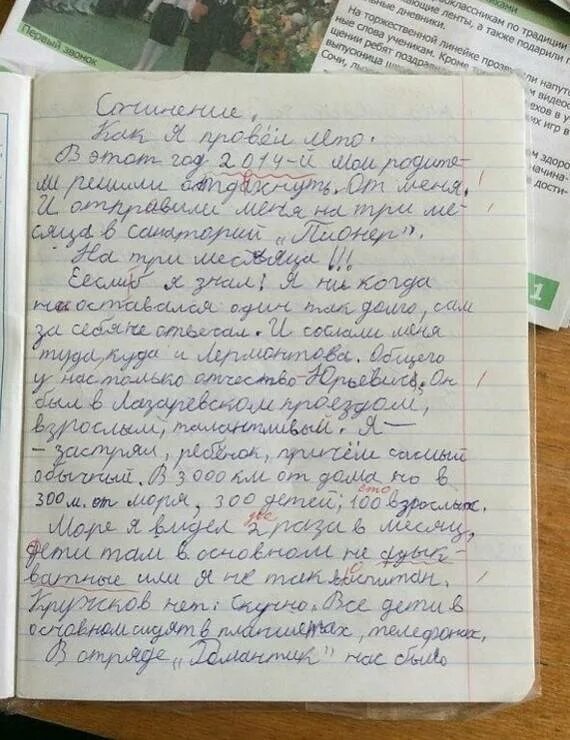 Первый звонок
воклассникам по традиции
ающие ленты, а также подарили п
льные дневники.
На торжественной линейке прозв
напут
ные слова ученикам. Кроме
щении ребят поздрав
выпускница
Сочи,
видеос
ехов в у
их игр в
здоро
начина-
дости-
1
Сочинение.
Как я провёл лето.
В этот год 2014-й мои родите-
ли решили отдохнуть. От меня.
И отправили меня на три ме-
сяца в санаторий „Пионер".
На три месяца!!!
Еслиб я знал! Я ни когда
не оставался один так долго, сам
за себя не отвечал. И сослали меня
туда, куда и Лермонтова. Общего
у нас только отчество-Юрьевич. Он
был в Лазаревском проездом,
взрослый, талантливый. Я—
—застрял, ребёнок, причём самый
обычный. В 3000 км от дома но в
300 м. от моря, 300 детей; 100 взрослых.
сто
Море я видел 2 раза в месяц,
два
дети там в основном не адык-
ватные или я не так воспитан.
Кружков нет! Скучно. Все дети в
основном сидят в планшетах, телефонах.
В отряде „Романтик" нас было